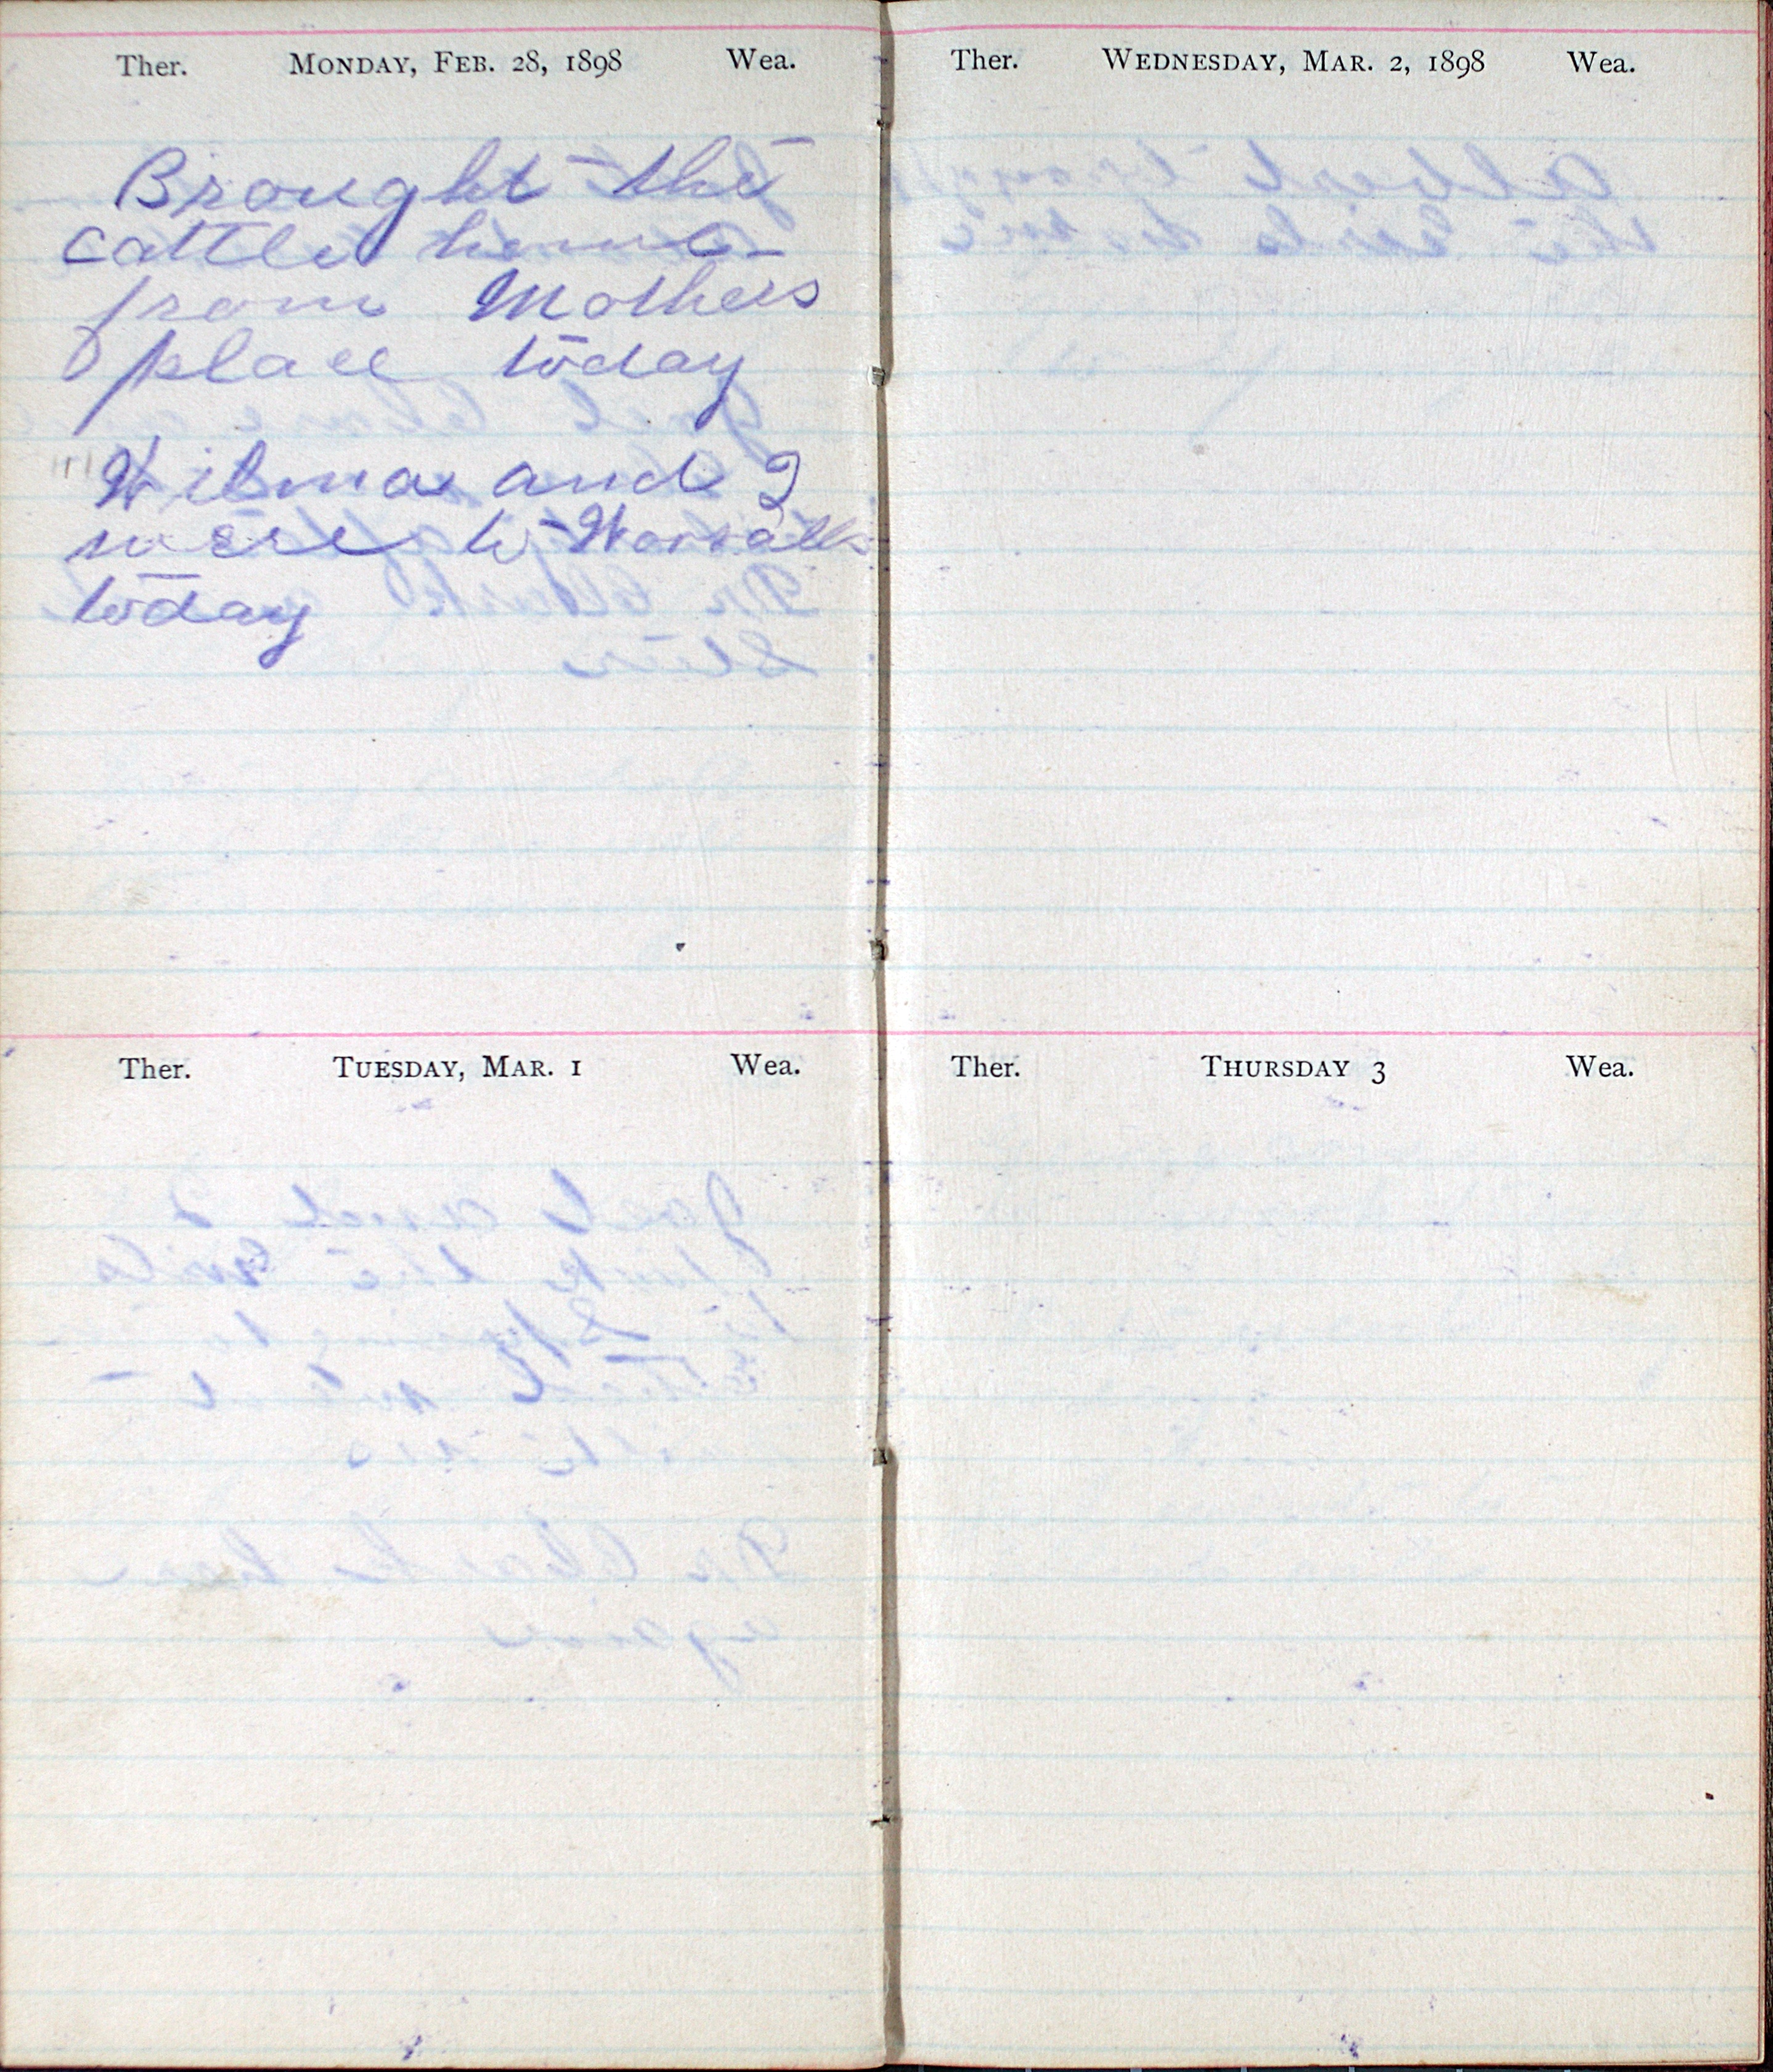 Ther. MONDAY, FEB. 28, 1898 Wea.
Brought the
cattle home
from Mothers
place today
Wilma and I
were to Worralls
today
Ther. TUESDAY, MAR. 1 Wea.
Ther. WEDNESDAY, MAR. 2, 1898 Wea.
Ther. THURSDAY 3 Wea.